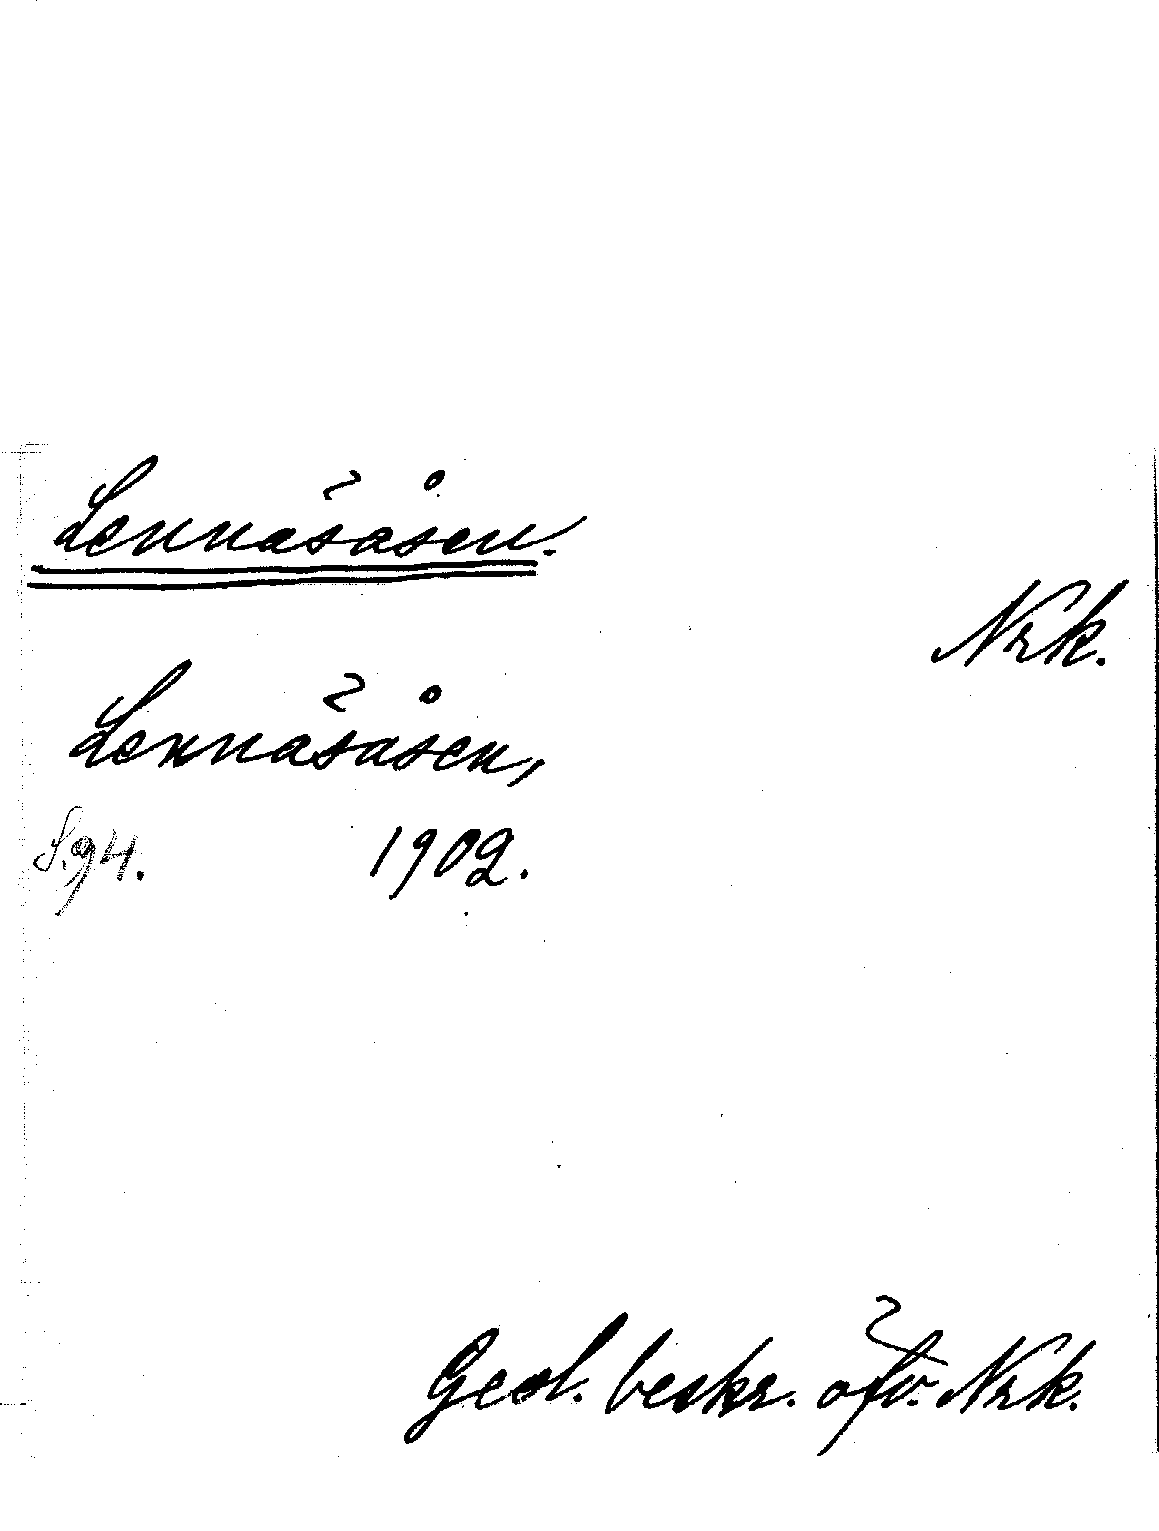 Lennäsåsen.
Nrk.
Lennäsåsen,
S. 94. 1902.
Geol. beskr. öfv. Nrk.